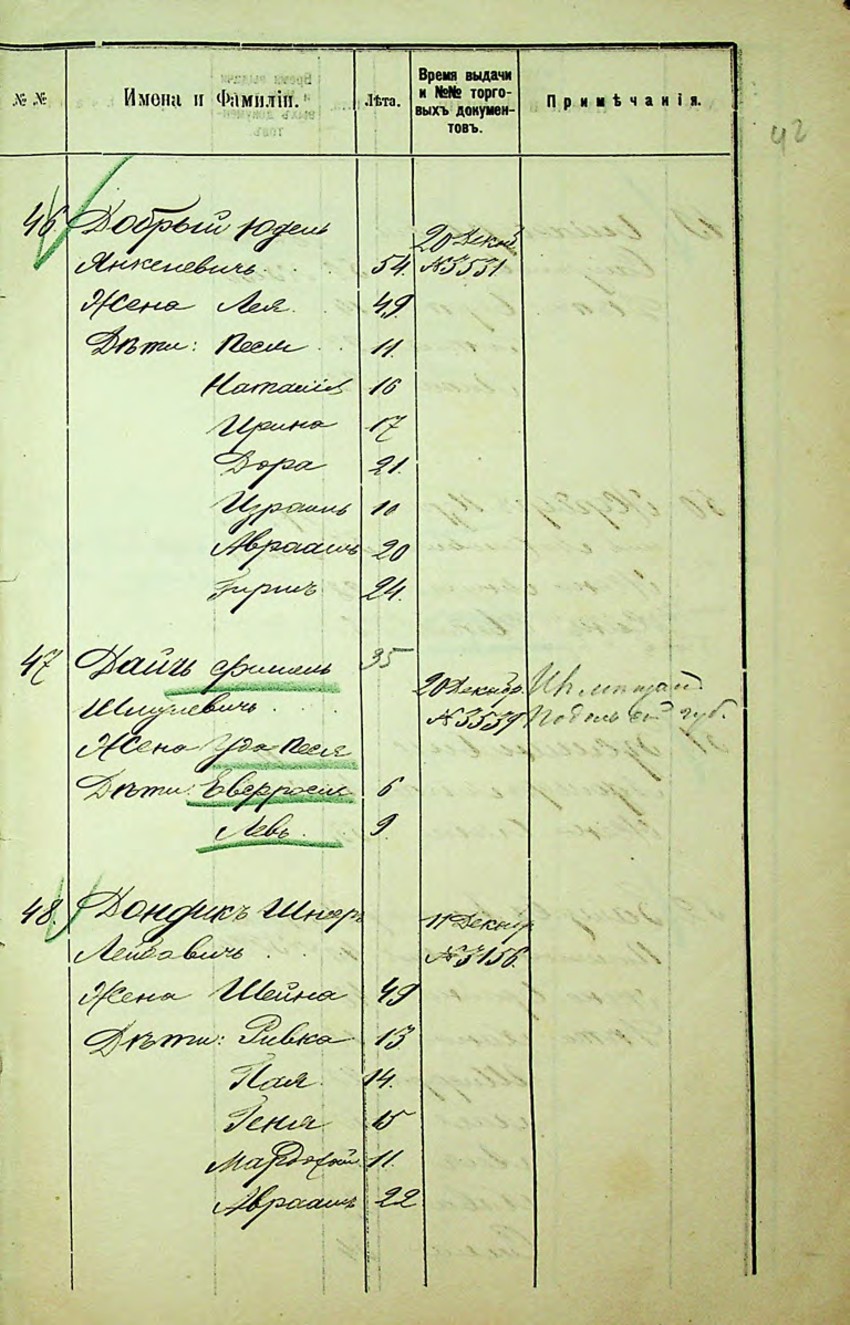 42
№ №
Имена и Фамиліи.
Лѣта.
Время выдачи
и №№ торго-
выхъ докумен-
товъ.
Примѣчанія.
46 Добрый Юдель
Янкелевичъ 54. 20 Декаб
№ 3531
Жена Лея 49
Дѣти: Песя 11.
Наталія 16
Ирина 17
Дора 21.
Израиль 10
Авраамъ 20
Гиршъ 24.
47 Дайчъ Фишель 35 20 Декабр.
Шмулевичъ № 3539 Подольск губ.
Жена Уда Песя
Дѣти: 6
Левъ 9
48. Дондикъ Шнеръ 11 Декабр
Лейбовичъ № 3156.
Жена Шейна 49
Дѣти: Ривка 13
14.
Геня 15
Мардохай 11.
Авраамъ 22